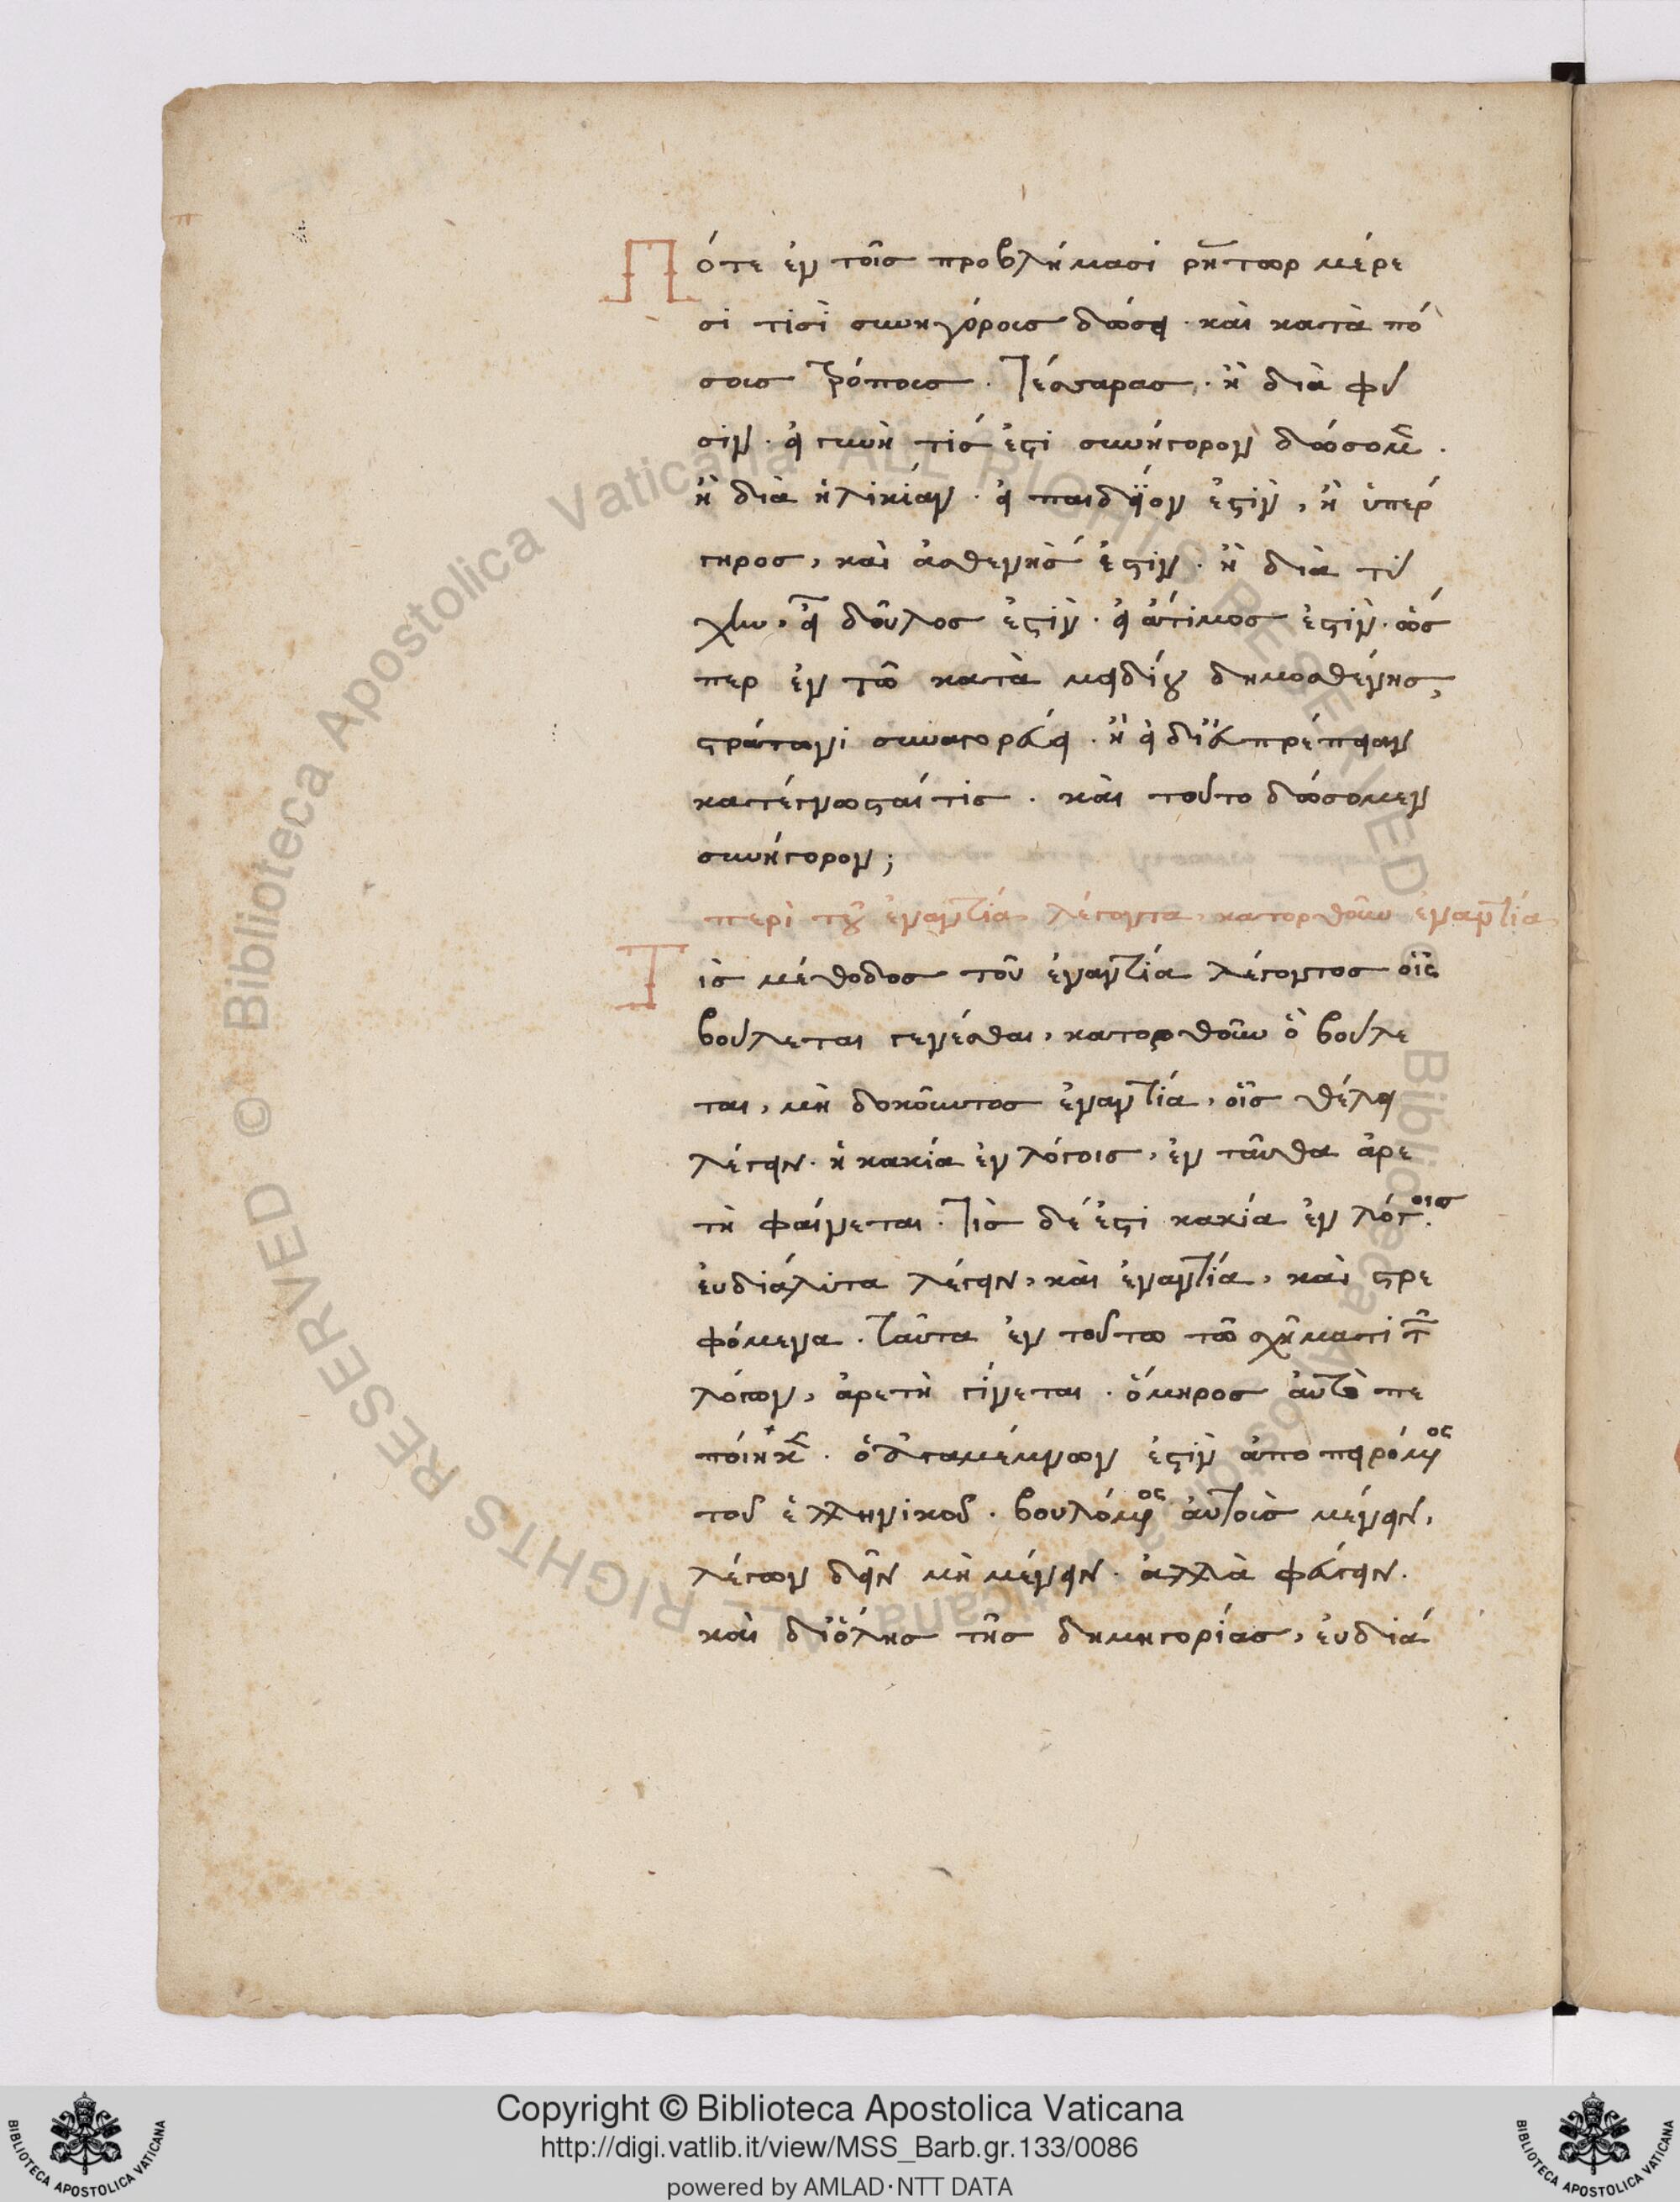 Πότε ἐν τοῖς προβλήμασι ῥήτωρ μέρε
σί τισι συνηγόροις δώσει· καὶ κατὰ πό
σοις τρόποις. Τέσσαρας· ἢ διὰ φύ
σιν· εἰ γυνὴ τίς ἐστι συνήγορον δώσομ̅.
ἢ διὰ ἡλικίαν· εἰ παιδίον ἐστὶν, ἢ ὑπέρ
γηρος, καὶ ἀσθενής ἐστιν· ἢ διὰ τύ
χην, εἰ δοῦλος ἐστὶν· εἰ ἄτιμος ἐστὶν· ὥσ
περ ἐν τῶ κατὰ μειδίου δημοσθένης,
στράτωνι συναγορεύει· ἢ εἰ δι'
κατέγνωσταί τις. καὶ τούτο δώσομεν
συνήγορον;
περὶ τοῦ ἐναντία λέγοντα, κατορθοῦν ἐναντία
Τίς μέθοδος τοῦ ἐναντία λέγοντος οἷς
βούλεται γενέσθαι, κατορθοῦν ὃ βούλε
ται, μὴ δοκοῦντος ἐναντία, οἷς θέλει
λέγειν. ἡ κακία ἐν λόγοις, ἐνταῦθα ἀρε
τὴ φαίνεται. Τίς δέ ἐστι κακία ἐν λόγοις·
εὐδιάλυτα λέγειν, καὶ ἐναντία, καὶ στρε
φόμενα. Ταῦτα ἐν τούτω τῶ σχήματι τ̅
λόγων, ἀρετὴ γίνεται. ὅμηρος αὐτὸ πε
ποίηκε. ὁ δ' ἀγαμέμνων ἐστὶν ἀποπειρόμ̅ος
τοῦ ἑλληνικοῦ. βουλόμ̅ος αὐτοὺς μένειν,
λέγων δεῖν μὴ μένειν. ἀλλὰ φεύγειν.
καὶ δι' ὅλης τῆς δημηγορίας, εὐδιά
Copyright © Biblioteca Apostolica Vaticana
http://digi.vatlib.it/view/MSS_Barb.gr.133/0086
powered by AMLAD·NTT DATA
BIBLIOTECA APOSTOLICA VATICANA
BIBLIOTECA APOSTOLICA VATICANA
© Biblioteca Apostolica Vaticana ALL RIGHTS RESERVED © Biblioteca Apostolica Vaticana ALL RIGHTS RESERVED